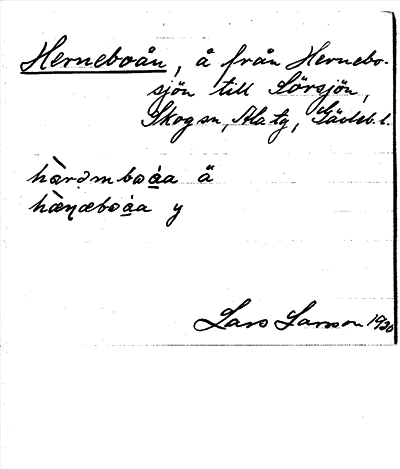 Herneboån, å från Hernebo-
sjön till Sörsjön,
Skog sn, Ala tg, Gävleb. l.
hærəmboáa ä
hæɳæboáa y
Lars Larsson 1930